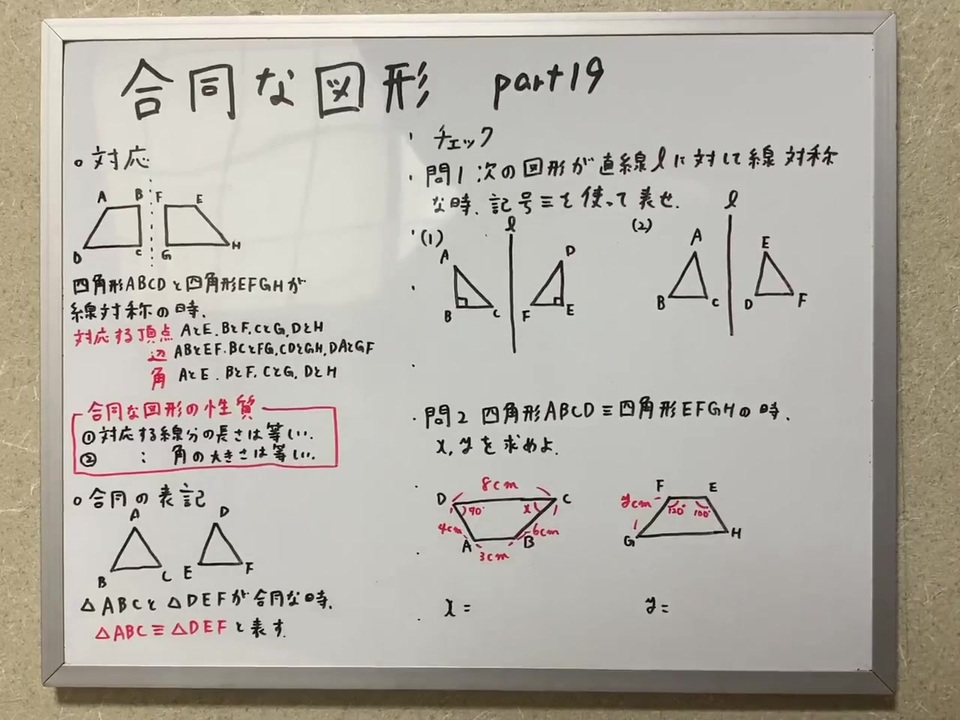 合同な図形 part19
○対応
A B F E
D C G H
四角形ABCDと四角形EFGHが
線対称の時.
対応する頂点 AとE.BとF.CとG.DとH
辺 ABとEF.BCとFG,CDとGH,DAとGF
角 AとE.BとF.CとG,DとH
合同な図形の性質
①対応する線分の長さは等しい.
② : 角の大きさは等しい.
○合同の表記
A D
B C E F
△ABCと△DEFが合同な時.
△ABC≡△DEFと表す.
・チェック
・問1 次の図形が直線lに対して線対称
な時.記号≡を使って表せ.
(1) l
A D
B C F E
(2) l
A E
B C D F
・問2 四角形ABCD≡四角形EFGHの時.
x,yを求めよ.
8cm
D C
70° x
4cm 6cm
A B
3cm
F E
ycm 120° 100°
G H
x= y=